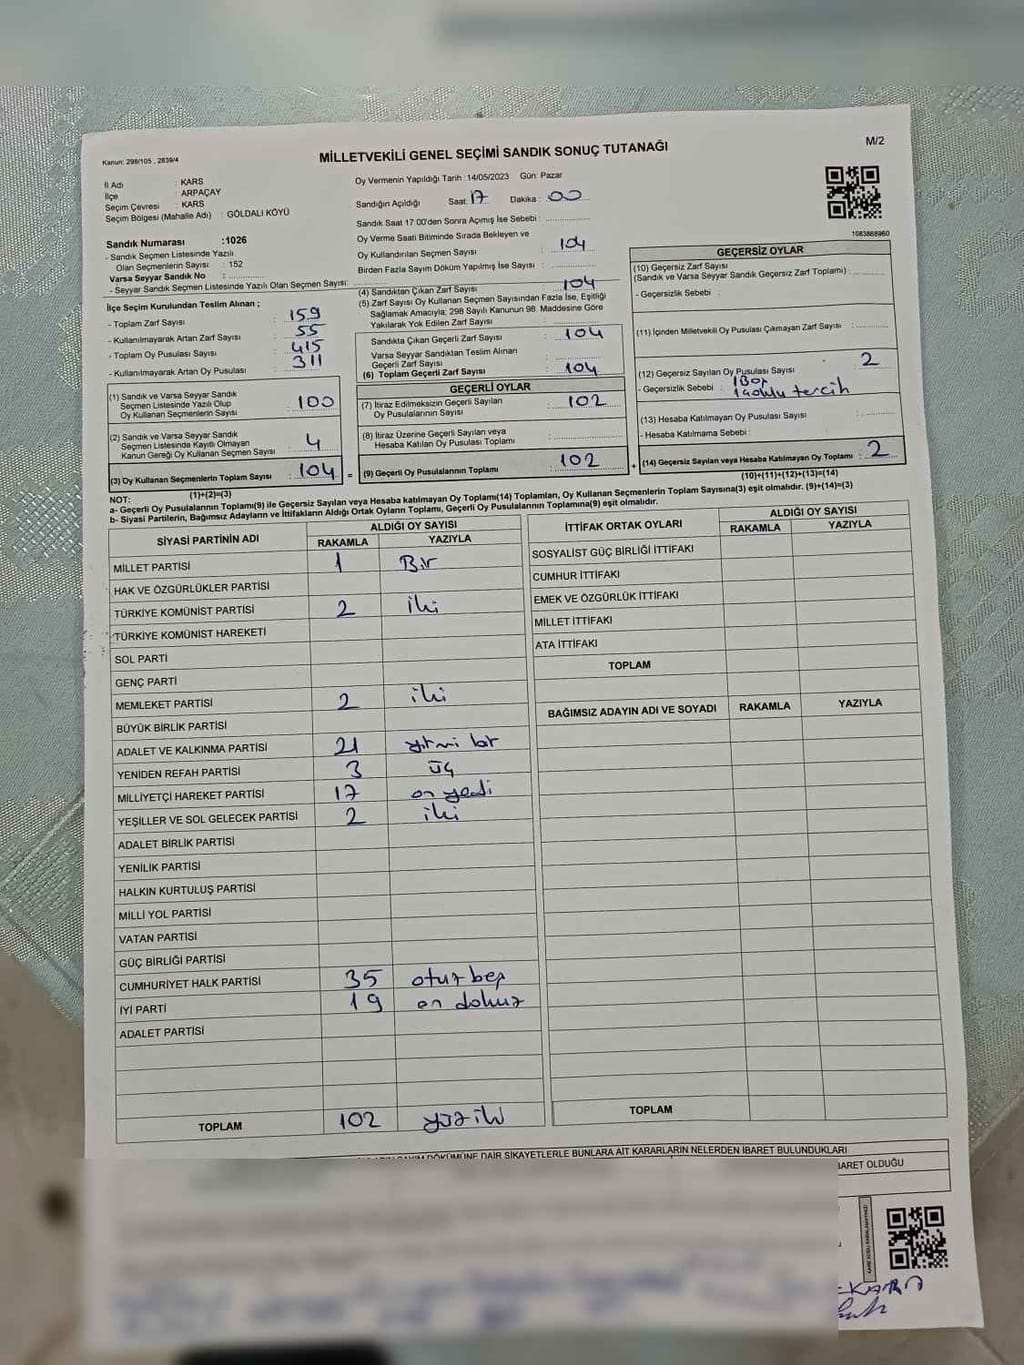 Kanun: 298/105 , 2839/4
MİLLETVEKİLİ GENEL SEÇİMİ SANDIK SONUÇ TUTANAĞI
M/2
İl Adı : KARS
İlçe : ARPAÇAY
Seçim Çevresi : KARS
Seçim Bölgesi (Mahalle Adı) : GÖLDALI KÖYÜ
Oy Vermenin Yapıldığı Tarih : 14/05/2023 Gün: Pazar
Sandığın Açıldığı Saat: 17 Dakika : 00
Sandık Saat 17:00'den Sonra Açımış İse Sebebi :
Oy Verme Saati Bitiminde Sırada Bekleyen ve
Oy Kullandırılan Seçmen Sayısı : 104
Birden Fazla Sayım Döküm Yapılmış İse Sayısı :
1083868960
Sandık Numarası : 1026
- Sandık Seçmen Listesinde Yazılı
Olan Seçmenlerin Sayısı : 152
Varsa Seyyar Sandık No :
- Seyyar Sandık Seçmen Listesinde Yazılı Olan Seçmen Sayısı:
İlçe Seçim Kurulundan Teslim Alınan ;
- Toplam Zarf Sayısı : 159
- Kullanılmayarak Artan Zarf Sayısı : 55
- Toplam Oy Pusulası Sayısı : 415
- Kullanılmayarak Artan Oy Pusulası : 311
(1) Sandık ve Varsa Seyyar Sandık
Seçmen Listesinde Yazılı Olup
Oy Kullanan Seçmenlerin Sayısı : 100
(2) Sandık ve Varsa Seyyar Sandık
Seçmen Listesinde Kayıtlı Olmayan
Kanun Gereği Oy Kullanan Seçmen Sayısı : 4
(3) Oy Kullanan Seçmenlerin Toplam Sayısı : 104 =
(1)+(2)=(3)
(4) Sandıktan Çıkan Zarf Sayısı : 104
(5) Zarf Sayısı Oy Kullanan Seçmen Sayısından Fazla İse, Eşitliği
Sağlamak Amacıyla; 298 Sayılı Kanunun 98. Maddesine Göre
Yakılarak Yok Edilen Zarf Sayısı
Sandıkta Çıkan Geçerli Zarf Sayısı : 104
Varsa Seyyar Sandıktan Teslim Alınan
Geçerli Zarf Sayısı :
(6) Toplam Geçerli Zarf Sayısı : 104
GEÇERLİ OYLAR
(7) İtiraz Edilmeksizin Geçerli Sayılan
Oy Pusulalarının Sayısı : 102
(8) İtiraz Üzerine Geçerli Sayılan veya
Hesaba Katılan Oy Pusulası Toplamı :
(9) Geçerli Oy Pusulalarının Toplamı : 102 +
GEÇERSİZ OYLAR
(10) Geçersiz Zarf Sayısı
(Sandık ve Varsa Seyyar Sandık Geçersiz Zarf Toplamı) :
- Geçersizlik Sebebi :
(11) İçinden Milletvekili Oy Pusulası Çıkmayan Zarf Sayısı :
(12) Geçersiz Sayılan Oy Pusulası Sayısı : 2
- Geçersizlik Sebebi : 1 Boş
tercih
(13) Hesaba Katılmayan Oy Pusulası Sayısı :
- Hesaba Katılmama Sebebi :
(14) Geçersiz Sayılan veya Hesaba Katılmayan Oy Toplamı : 2
(10)+(11)+(12)+(13)=(14)
NOT:
a- Geçerli Oy Pusulalarının Toplamı(9) ile Geçersiz Sayılan veya Hesaba katılmayan Oy Toplamı(14) Toplamları, Oy Kullanan Seçmenlerin Toplam Sayısına(3) eşit olmalıdır. (9)+(14)=(3)
b- Siyasi Partilerin, Bağımsız Adayların ve İttifakların Aldığı Ortak Oyların Toplamı, Geçerli Oy Pusulalarının Toplamına(9) eşit olmalıdır.
SİYASİ PARTİNİN ADI
ALDIĞI OY SAYISI
RAKAMLA YAZIYLA
MİLLET PARTİSİ 1 Bir
HAK VE ÖZGÜRLÜKLER PARTİSİ
TÜRKİYE KOMÜNİST PARTİSİ 2 iki
TÜRKİYE KOMÜNİST HAREKETİ
SOL PARTİ
GENÇ PARTİ
MEMLEKET PARTİSİ 2 iki
BÜYÜK BİRLİK PARTİSİ
ADALET VE KALKINMA PARTİSİ 21 yirmi bir
YENİDEN REFAH PARTİSİ 3 üç
MİLLİYETÇİ HAREKET PARTİSİ 17 on yedi
YEŞİLLER VE SOL GELECEK PARTİSİ 2 iki
ADALET BİRLİK PARTİSİ
YENİLİK PARTİSİ
HALKIN KURTULUŞ PARTİSİ
MİLLİ YOL PARTİSİ
VATAN PARTİSİ
GÜÇ BİRLİĞİ PARTİSİ
CUMHURİYET HALK PARTİSİ 35 otuz beş
İYİ PARTİ 19 on dokuz
ADALET PARTİSİ
TOPLAM 102 yüz iki
İTTİFAK ORTAK OYLARI
ALDIĞI OY SAYISI
RAKAMLA YAZIYLA
SOSYALİST GÜÇ BİRLİĞİ İTTİFAKI
CUMHUR İTTİFAKI
EMEK VE ÖZGÜRLÜK İTTİFAKI
MİLLET İTTİFAKI
ATA İTTİFAKI
TOPLAM
BAĞIMSIZ ADAYIN ADI VE SOYADI RAKAMLA YAZIYLA
TOPLAM
DÖKÜMÜNE DAİR ŞİKAYETLERLE BUNLARA AİT KARARLARIN NELERDEN İBARET BULUNDUKLARI
İBARET OLDUĞU